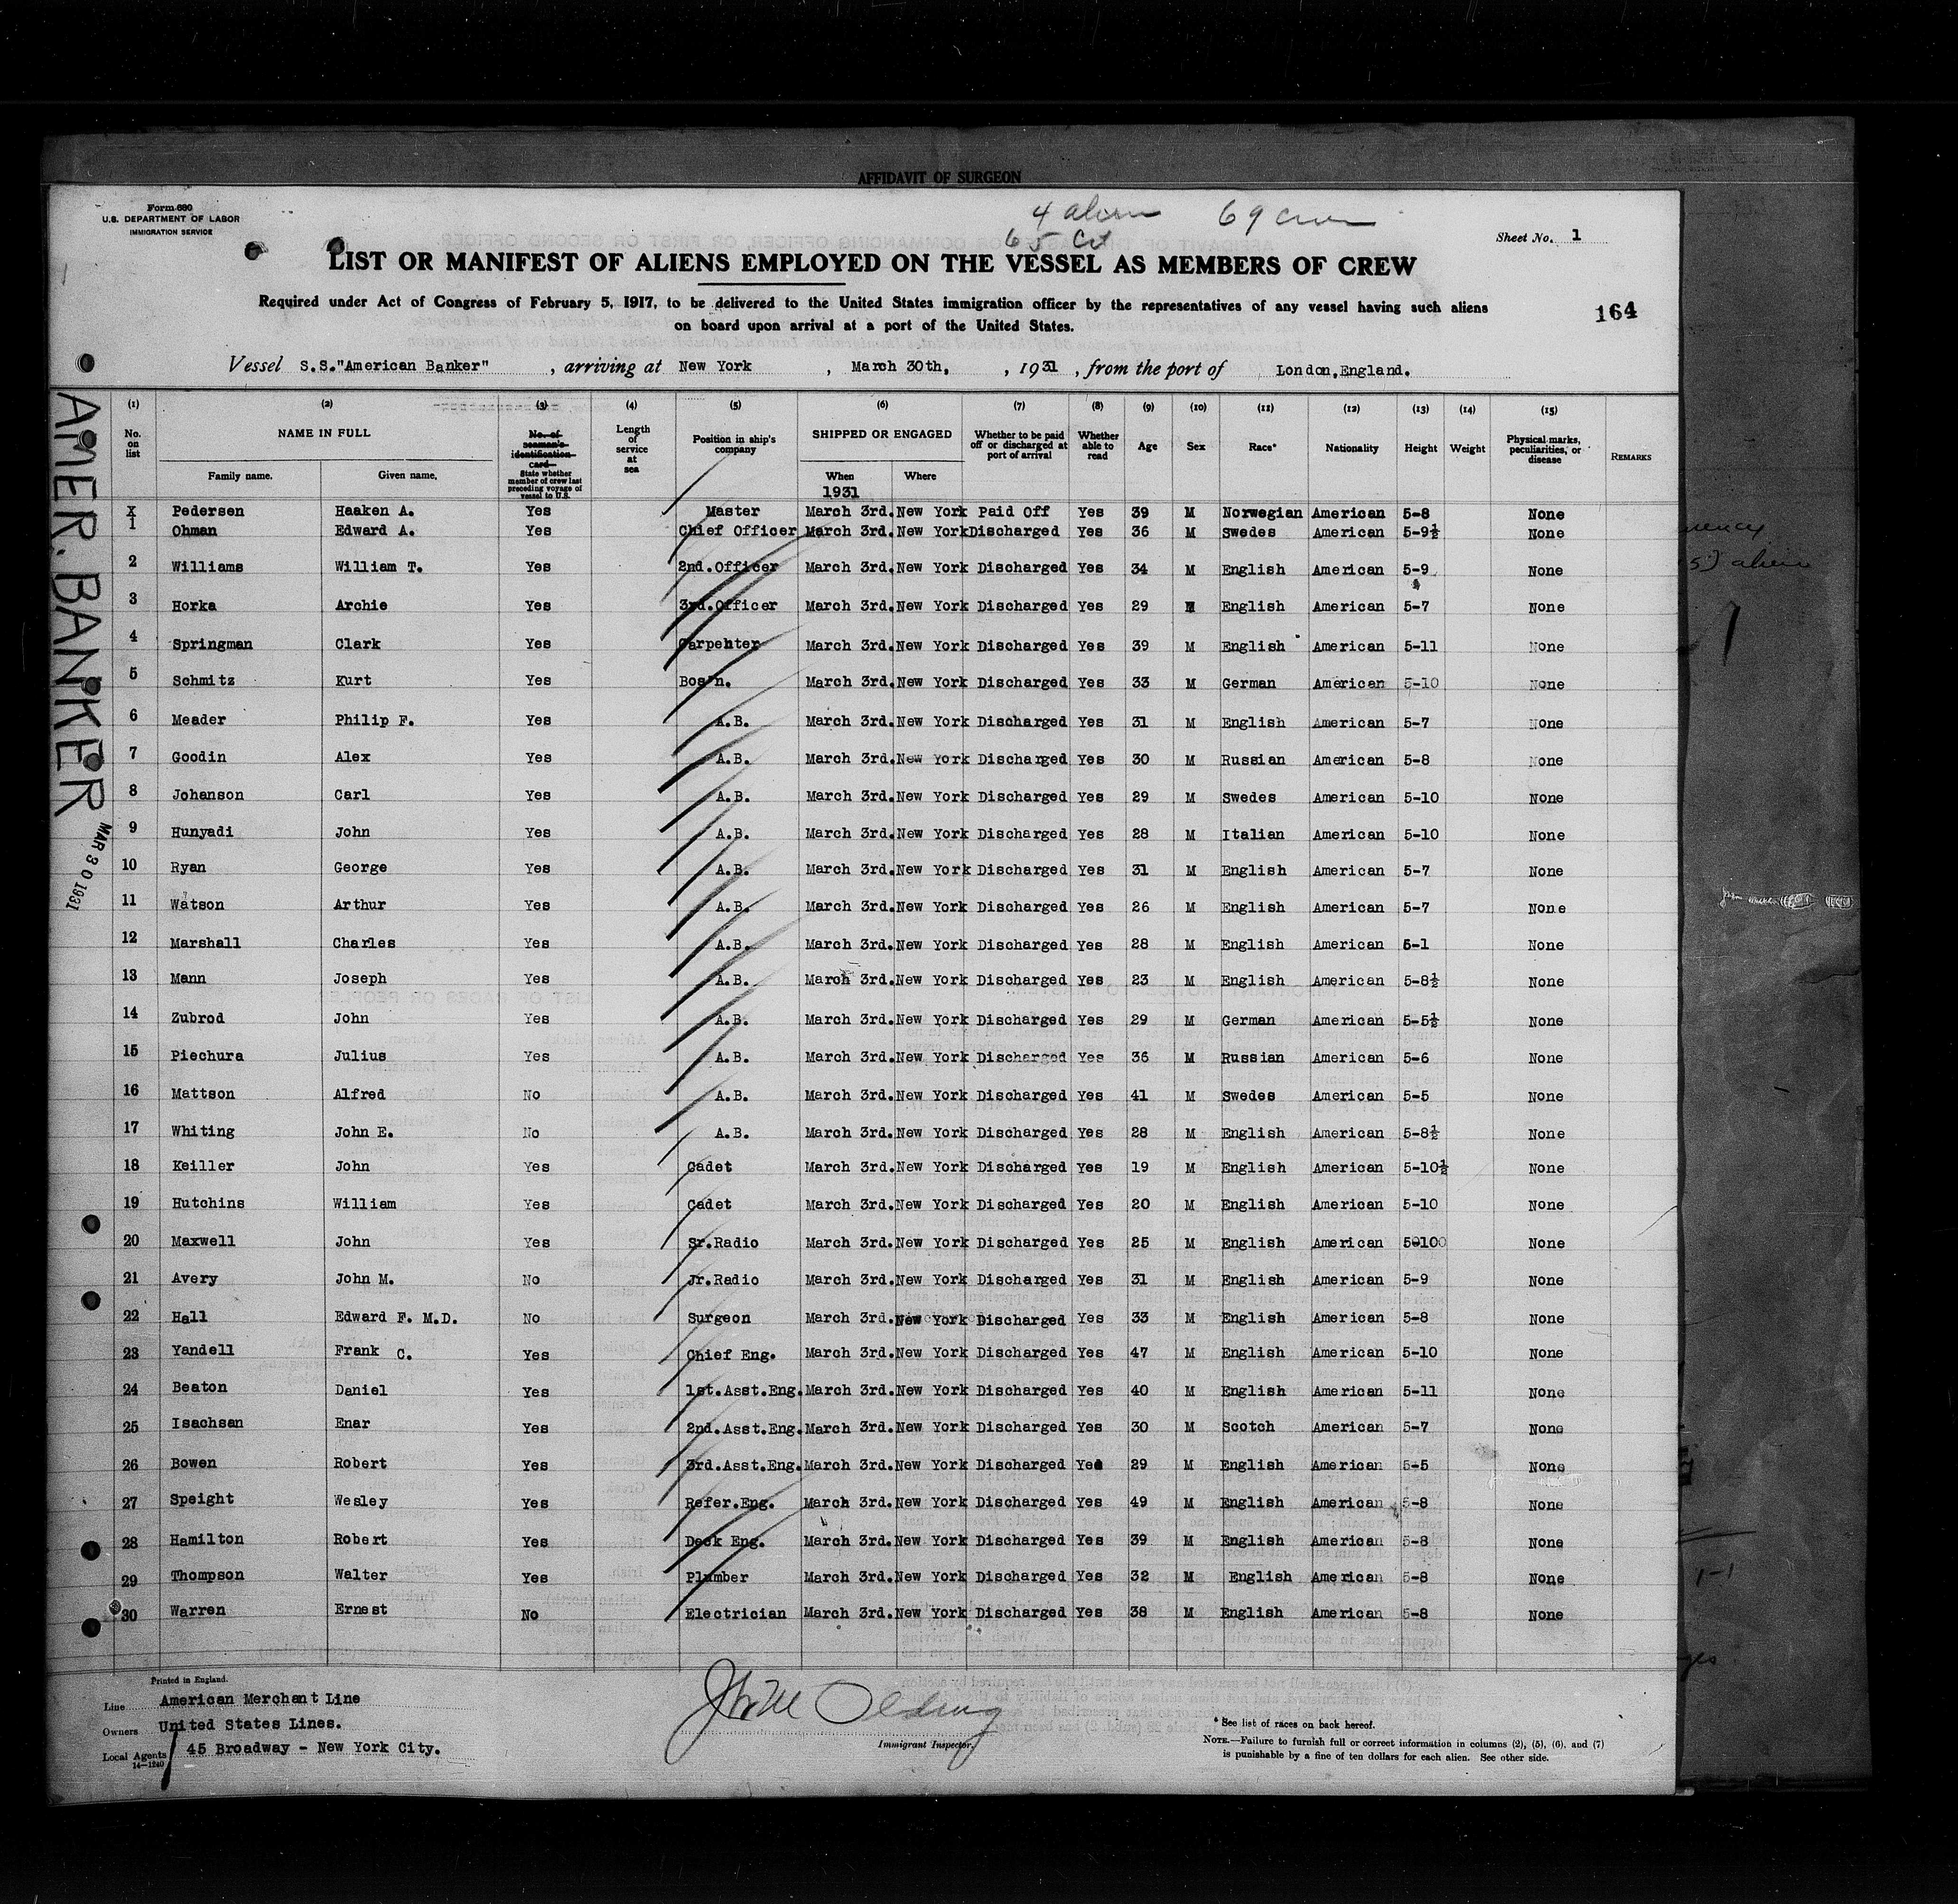 AFFIDAVIT OF SURGEON
Form 680
U.S. DEPARTMENT OF LABOR
IMMIGRATION SERVICE
4 alien 69 crew
65 Cit
Sheet No. 1
LIST OR MANIFEST OF ALIENS EMPLOYED ON THE VESSEL AS MEMBERS OF CREW
Required under Act of Congress of February 5, 1917, to be delivered to the United States immigration officer by the representatives of any vessel having such aliens
on board upon arrival at a port of the United States.
164
Vessel S.S."American Banker" , arriving at New York , March 30th, , 1931 , from the port of London,England.
AMER. BANKER
MAR 30 1931
(1) (2) (3) (4) (5) (6) (7) (8) (9) (10) (11) (12) (13) (14) (15)
No. on list NAME IN FULL Family name. Given name. No. of seaman's identification card State whether member of crew last preceding voyage of vessel to U.S. Length of service at sea Position in ship's company SHIPPED OR ENGAGED When 1931 Where Whether to be paid off or discharged at port of arrival Whether able to read Age Sex Race* Nationality Height Weight Physical marks, peculiarities, or disease REMARKS
X Pedersen Haaken A. Yes Master March 3rd. New York Paid Off Yes 39 M Norwegian American 5-8 None
1 Ohman Edward A. Yes Chief Officer March 3rd. New York Discharged Yes 36 M Swedes American 5-9½ None
2 Williams William T. Yes 2nd.Officer March 3rd. New York Discharged Yes 34 M English American 5-9 None
3 Horka Archie Yes 3rd.Officer March 3rd. New York Discharged Yes 29 M English American 5-7 None
4 Springman Clark Yes Carpenter March 3rd. New York Discharged Yes 39 M English American 5-11 None
5 Schmitz Kurt Yes Bos'n. March 3rd. New York Discharged Yes 33 M German American 5-10 None
6 Meader Philip F. Yes A.B. March 3rd. New York Discharged Yes 31 M English American 5-7 None
7 Goodin Alex Yes A.B. March 3rd. New York Discharged Yes 30 M Russian American 5-8 None
8 Johanson Carl Yes A.B. March 3rd. New York Discharged Yes 29 M Swedes American 5-10 None
9 Hunyadi John Yes A.B. March 3rd. New York Discharged Yes 28 M Italian American 5-10 None
10 Ryan George Yes A.B. March 3rd. New York Discharged Yes 31 M English American 5-7 None
11 Watson Arthur Yes A.B. March 3rd. New York Discharged Yes 26 M English American 5-7 None
12 Marshall Charles Yes A.B. March 3rd. New York Discharged Yes 28 M English American 6-1 None
13 Mann Joseph Yes A.B. March 3rd. New York Discharged Yes 23 M English American 5-8½ None
14 Zubrod John Yes A.B. March 3rd. New York Discharged Yes 29 M German American 5-5½ None
15 Piechura Julius Yes A.B. March 3rd. New York Discharged Yes 36 M Russian American 5-6 None
16 Mattson Alfred No A.B. March 3rd. New York Discharged Yes 41 M Swedes American 5-5 None
17 Whiting John E. No A.B. March 3rd. New York Discharged Yes 28 M English American 5-8½ None
18 Keiller John Yes Cadet March 3rd. New York Discharged Yes 19 M English American 5-10½ None
19 Hutchins William Yes Cadet March 3rd. New York Discharged Yes 20 M English American 5-10 None
20 Maxwell John Yes Sr.Radio March 3rd. New York Discharged Yes 25 M English American 5-10 None
21 Avery John M. No Jr.Radio March 3rd. New York Discharged Yes 31 M English American 5-9 None
22 Hall Edward F. M.D. No Surgeon March 3rd. New York Discharged Yes 33 M English American 5-8 None
23 Yandell Frank C. Yes Chief Eng. March 3rd. New York Discharged Yes 47 M English American 5-10 None
24 Beaton Daniel Yes 1st.Asst.Eng. March 3rd. New York Discharged Yes 40 M English American 5-11 None
25 Isachsan Enar Yes 2nd.Asst.Eng. March 3rd. New York Discharged Yes 30 M Scotch American 5-7 None
26 Bowen Robert Yes 3rd.Asst.Eng. March 3rd. New York Discharged Yes 29 M English American 5-5 None
27 Speight Wesley Yes Refer.Eng. March 3rd. New York Discharged Yes 49 M English American 5-8 None
28 Hamilton Robert Yes Deck Eng. March 3rd. New York Discharged Yes 39 M English American 5-8 None
29 Thompson Walter Yes Plumber March 3rd. New York Discharged Yes 32 M English American 5-8 None
30 Warren Ernest No Electrician March 3rd. New York Discharged Yes 38 M English American 5-8 None
Printed in England.
Line American Merchant Line
Owners United States Lines.
Local Agents 45 Broadway - New York City.
14-1240
Immigrant Inspector.
* See list of races on back hereof.
NOTE.—Failure to furnish full or correct information in columns (2), (5), (6), and (7)
is punishable by a fine of ten dollars for each alien. See other side.